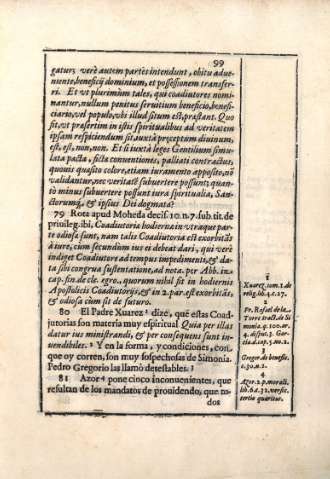 99
gatur; verè autem partes intendunt, obitu adue-
niente, beneficij dominium, et possessionem transfer-
ri. Et vt plurimùm tales, qui coadiutores nomi-
nantur, nullum penitus seruitium beneficio, benefi-
ciario, vel populo, vbi illud situm est, præstant. Quo
fit, vt præsertim in istis spiritualibus ad veritatem
ipsam respiciendum sit iuxtà præceptum diuinum,
est, est, non, non. Et si iuxtà leges Gentilium simu-
lata pacta, fictæ conuentiones, palliati contractus,
quouis quæsito colore, etiam iuramento apposito, nõ
validantur, nec veritatẽ subuertere possunt; quan-
tò minus subuertere possunt iura spiritualia, San-
ctorumq, & ipsius Dei dogmata?
79 Rota apud Moheda decis. 10. n. 7. sub. tit. de
priuileg. ibi, Coadiutoria hodierna in vtraque par-
te odiosa sunt, nam talis Coadiutoria est exorbitã
à iure, cùm secundùm ius ei debeat dari, qui verè
indiget Coadiutore ad tempus impedimenti, & da-
ta sibi congrua sustentatione, ad nota. per Abb. in
cap. fin. de cle. ægro, quorum nihil fit in hodiernis
Apostolicis Coadiutorijs, & in 2. par est exorbitãs,
& odiosa cùm sit de futuro.
80 El Padre Xuarez 1 dize, què estas Coad-
jutorias son materia muy espiritual Quia per illas
datur ius ministrandi, & per consequens sunt in-
uendibiles. 2 Y en la forma, y condiciones, con
que oy corren, son muy sospechosas de Simonia.
Pedro Gregorio las llamò detestables. 3
81 Azor 4 pone cinco inconuenientes, que
resultan de los mandatos de prouidendo, que to-
dos
1
Xuarez tom. 1. de
relig. lib. 4. c. 27.
2
Fr. Rafael de la
Torre tract. de Si-
monia q. 100. ar.
4. disput. 3. Gar-
cia 4. cap. 5. no. 2.
3
Gregor. de benefic.
c. 30. n. 2.
4
Azor 2. p. morali,
lib. 6. c. 32. vers. se-
tertio quæritur.